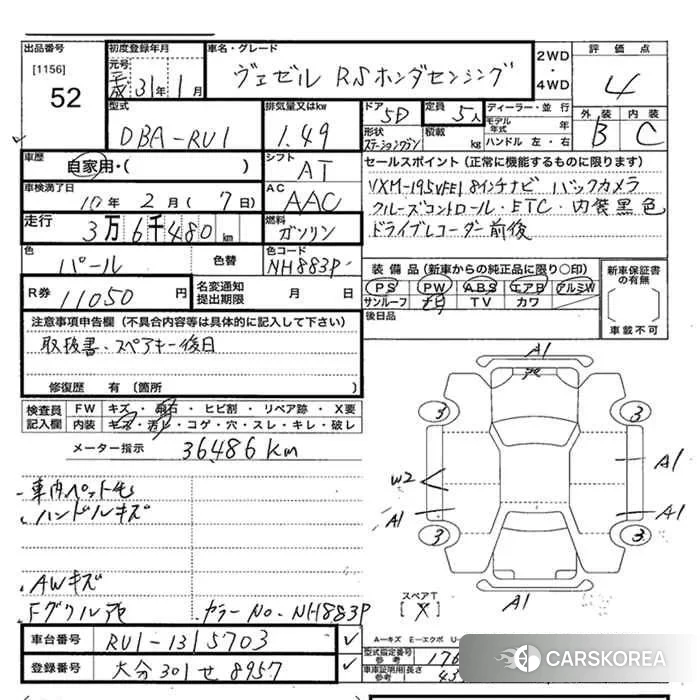 出品番号
[1156]
52
初度登録年月
元号
31年 1月
車名・グレード
ヴェゼル RSホンダセンシング
2WD
・
4WD
評価点
4
外装 内装
B C
型式
DBA-RU1
排気量又はkw
1.49
ドア
5D
形状
ステーションワゴン
定員
5人
積載
kg
ディーラー・並行
モデル年式 年
ハンドル 左・右
車歴
自家用・( )
シフト
AT
車検満了日
10年 2月 (7日)
AC
AAC
走行
3万6千480km
燃料
ガソリン
色
パール
色替
色コード
NH883P
セールスポイント (正常に機能するものに限ります)
VXM-195VFEi 8インチナビ バックカメラ
クルーズコントロール・ETC・内装黒色
ドライブレコーダー前後
装備品 (新車からの純正品に限り○印)
PS PW ABS エアB アルミW
サンルーフ ナビ TV カワ
後日品
新車保証書
の有無
車載不可
R券 11050円
名変通知
提出期限
月 日
注意事項申告欄 (不具合内容等は具体的に記入して下さい)
取扱書、スペアキー後日
修復歴 有 (箇所 )
検査員
記入欄
FW キズ・飛石・ヒビ割・リペア跡・X要
内装 キズ・汚レ・コゲ・穴・スレ・キレ・破レ
メーター指示
36486 km
車内ペット毛
ハンドルキズ
AWキズ
カラーNo. NH883P
A1
3 3
A1
W2
A1
A1
3 3
A1
スペアT
[X]
車台番号 RU1-1315703
登録番号 大分 301 せ 8957
A-キズ E-エクボ U-
型式指定番号
参考
176
車庫証明用長さ
参考
43
CARSKOREA